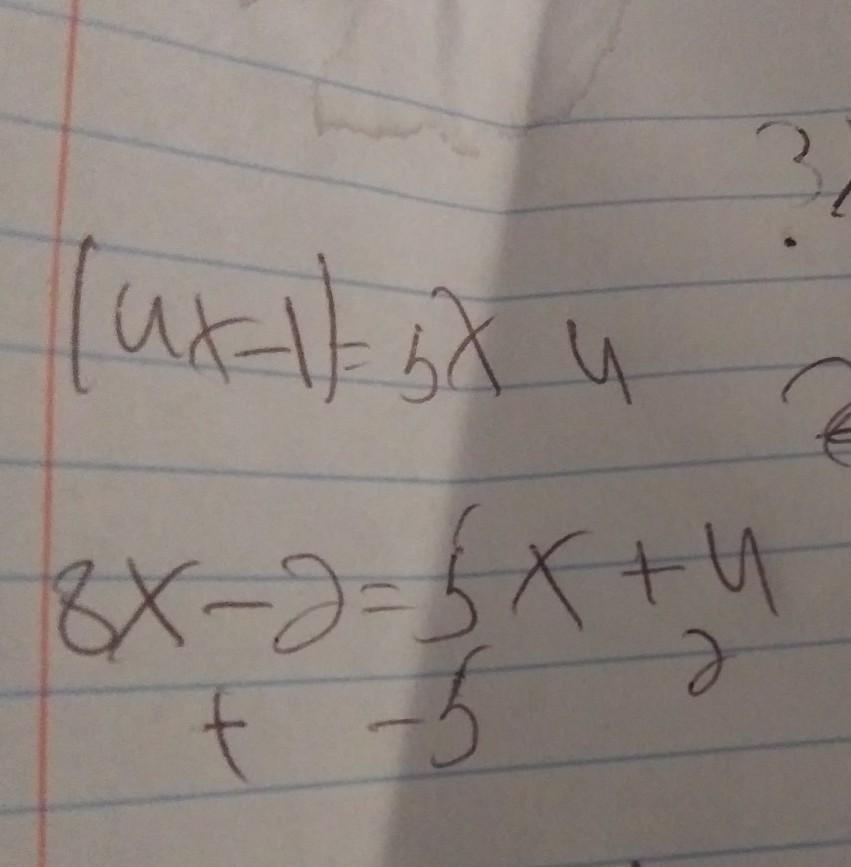 (4x-1)=5x 4
8x-2=5x+4
+ -5 2